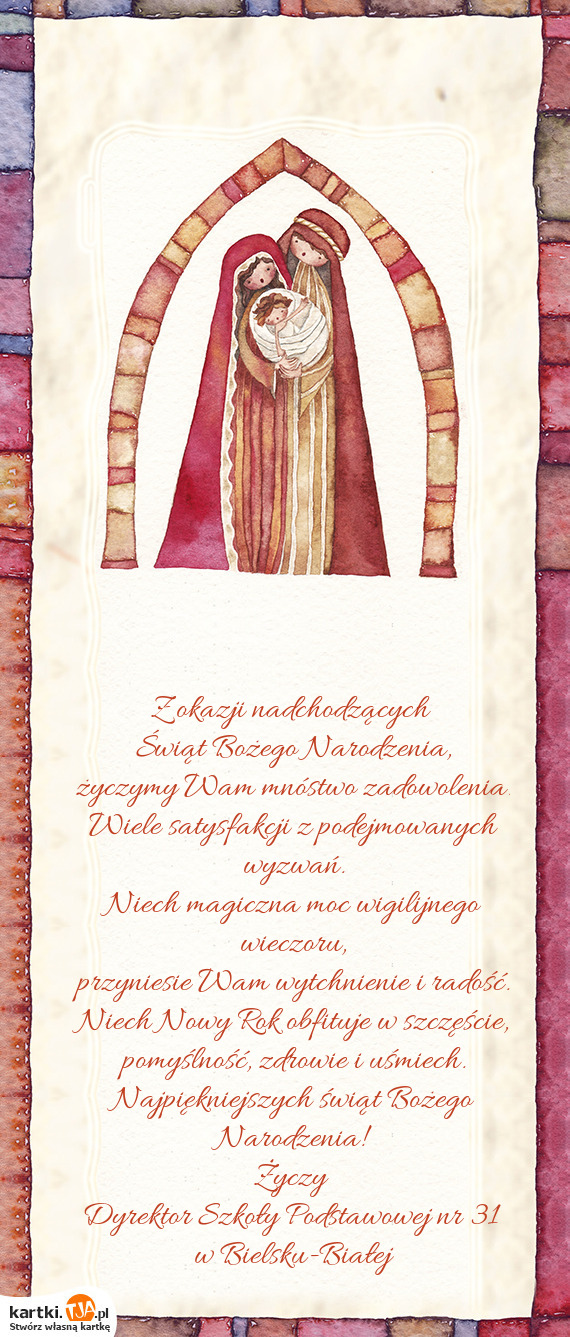 Z okazji nadchodzących
Świąt Bożego Narodzenia,
życzymy Wam mnóstwo zadowolenia.
Wiele satysfakcji z podejmowanych
wyzwań.
Niech magiczna moc wigilijnego
wieczoru,
przyniesie Wam wytchnienie i radość.
Niech Nowy Rok obfituje w szczęście,
pomyślność, zdrowie i uśmiech.
Najpiękniejszych świąt Bożego
Narodzenia!
Życzy
Dyrektor Szkoły Podstawowej nr 31
w Bielsku-Białej
kartki.TJA.pl
Stwórz własną kartkę